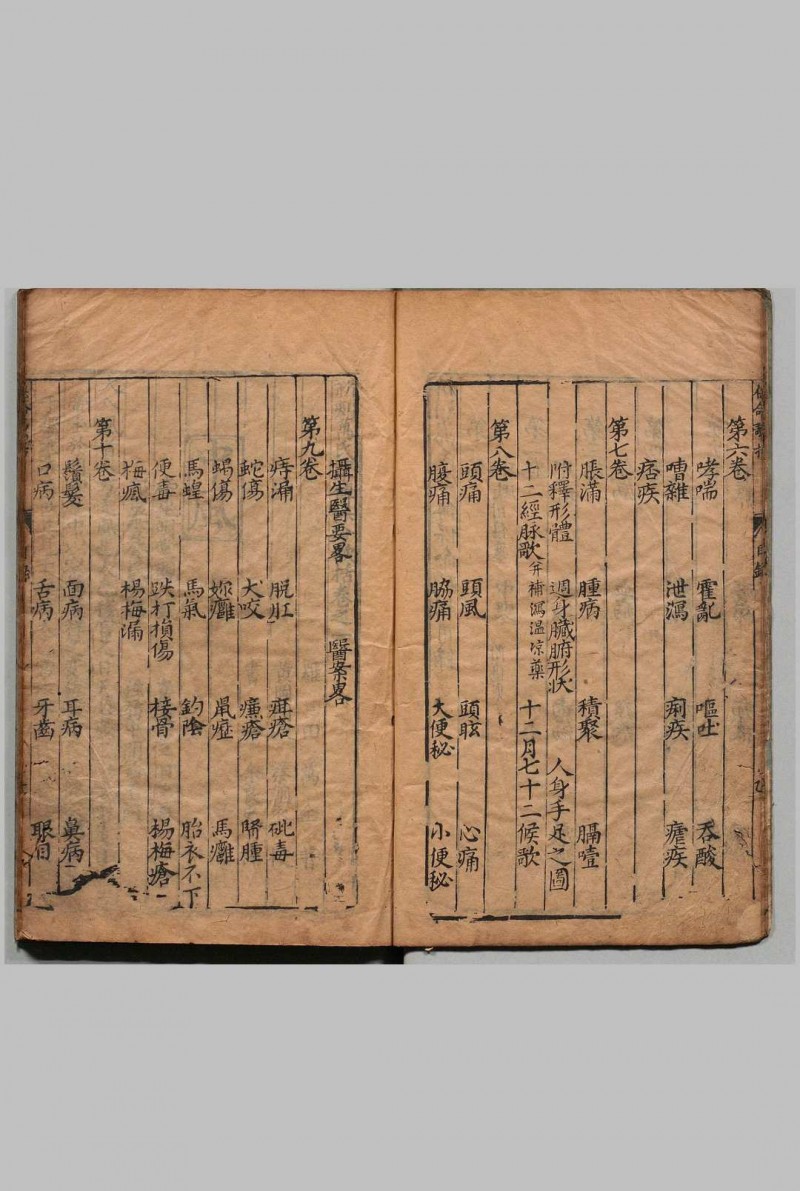 第六卷
哮喘 霍亂 嘔吐 吞酸
嘈雜 泄瀉 痢疾 瘧疾
痞疾
第七卷
脹滿 腫病 積聚 膈噎
附釋形體 週身臟腑形狀 人身手足之圖
十二經脉歌 并補瀉溫凉藥 十二月七十二候歌
第八卷
頭痛 頭風 頭眩 心痛
腹痛 脇痛 大便秘 小便秘
攝生醫要畧 醫案畧
第九卷
痔漏 脫肛 疳瘡 砒毒
蛇傷 犬咬 癀瘡 臍腫
蝎傷 馬癰
馬蝗 馬氣 釣陰 胎衣不下
便毒 跌打損傷 接骨 楊梅瘡
梅瘋 楊梅漏
第十卷
鬚髮 面病 耳病 鼻病
口病 舌病 牙齒 眼目